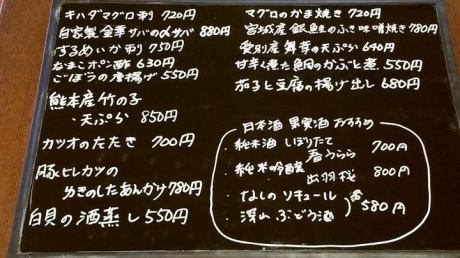 キハダマグロ刺 720円
自家製 金華サバの〆サバ 880円
するめいか刺 750円
なまこポン酢 630円
ごぼうの唐揚げ 550円
熊本産 竹の子
・天ぷか 850円
カツオのたたき 700円
豚ヒレカツの
ゆきのしたあんかけ 780円
白貝の酒蒸し 550円
マグロのかま焼き 720円
宮城産 銀鮭のふき味噌焼き 780円
愛別産 舞茸の天ぷか 640円
甘辛く煮た鯛のかぶと煮 550円
茄子と豆腐の揚げ出し 680円
日本酒 果実酒 おすすめ
・純米酒 しぼりたて
春うらら 700円
・純米吟醸
出羽桜 800円
・なしのリキュール
・深山ぶどう酒
各580円